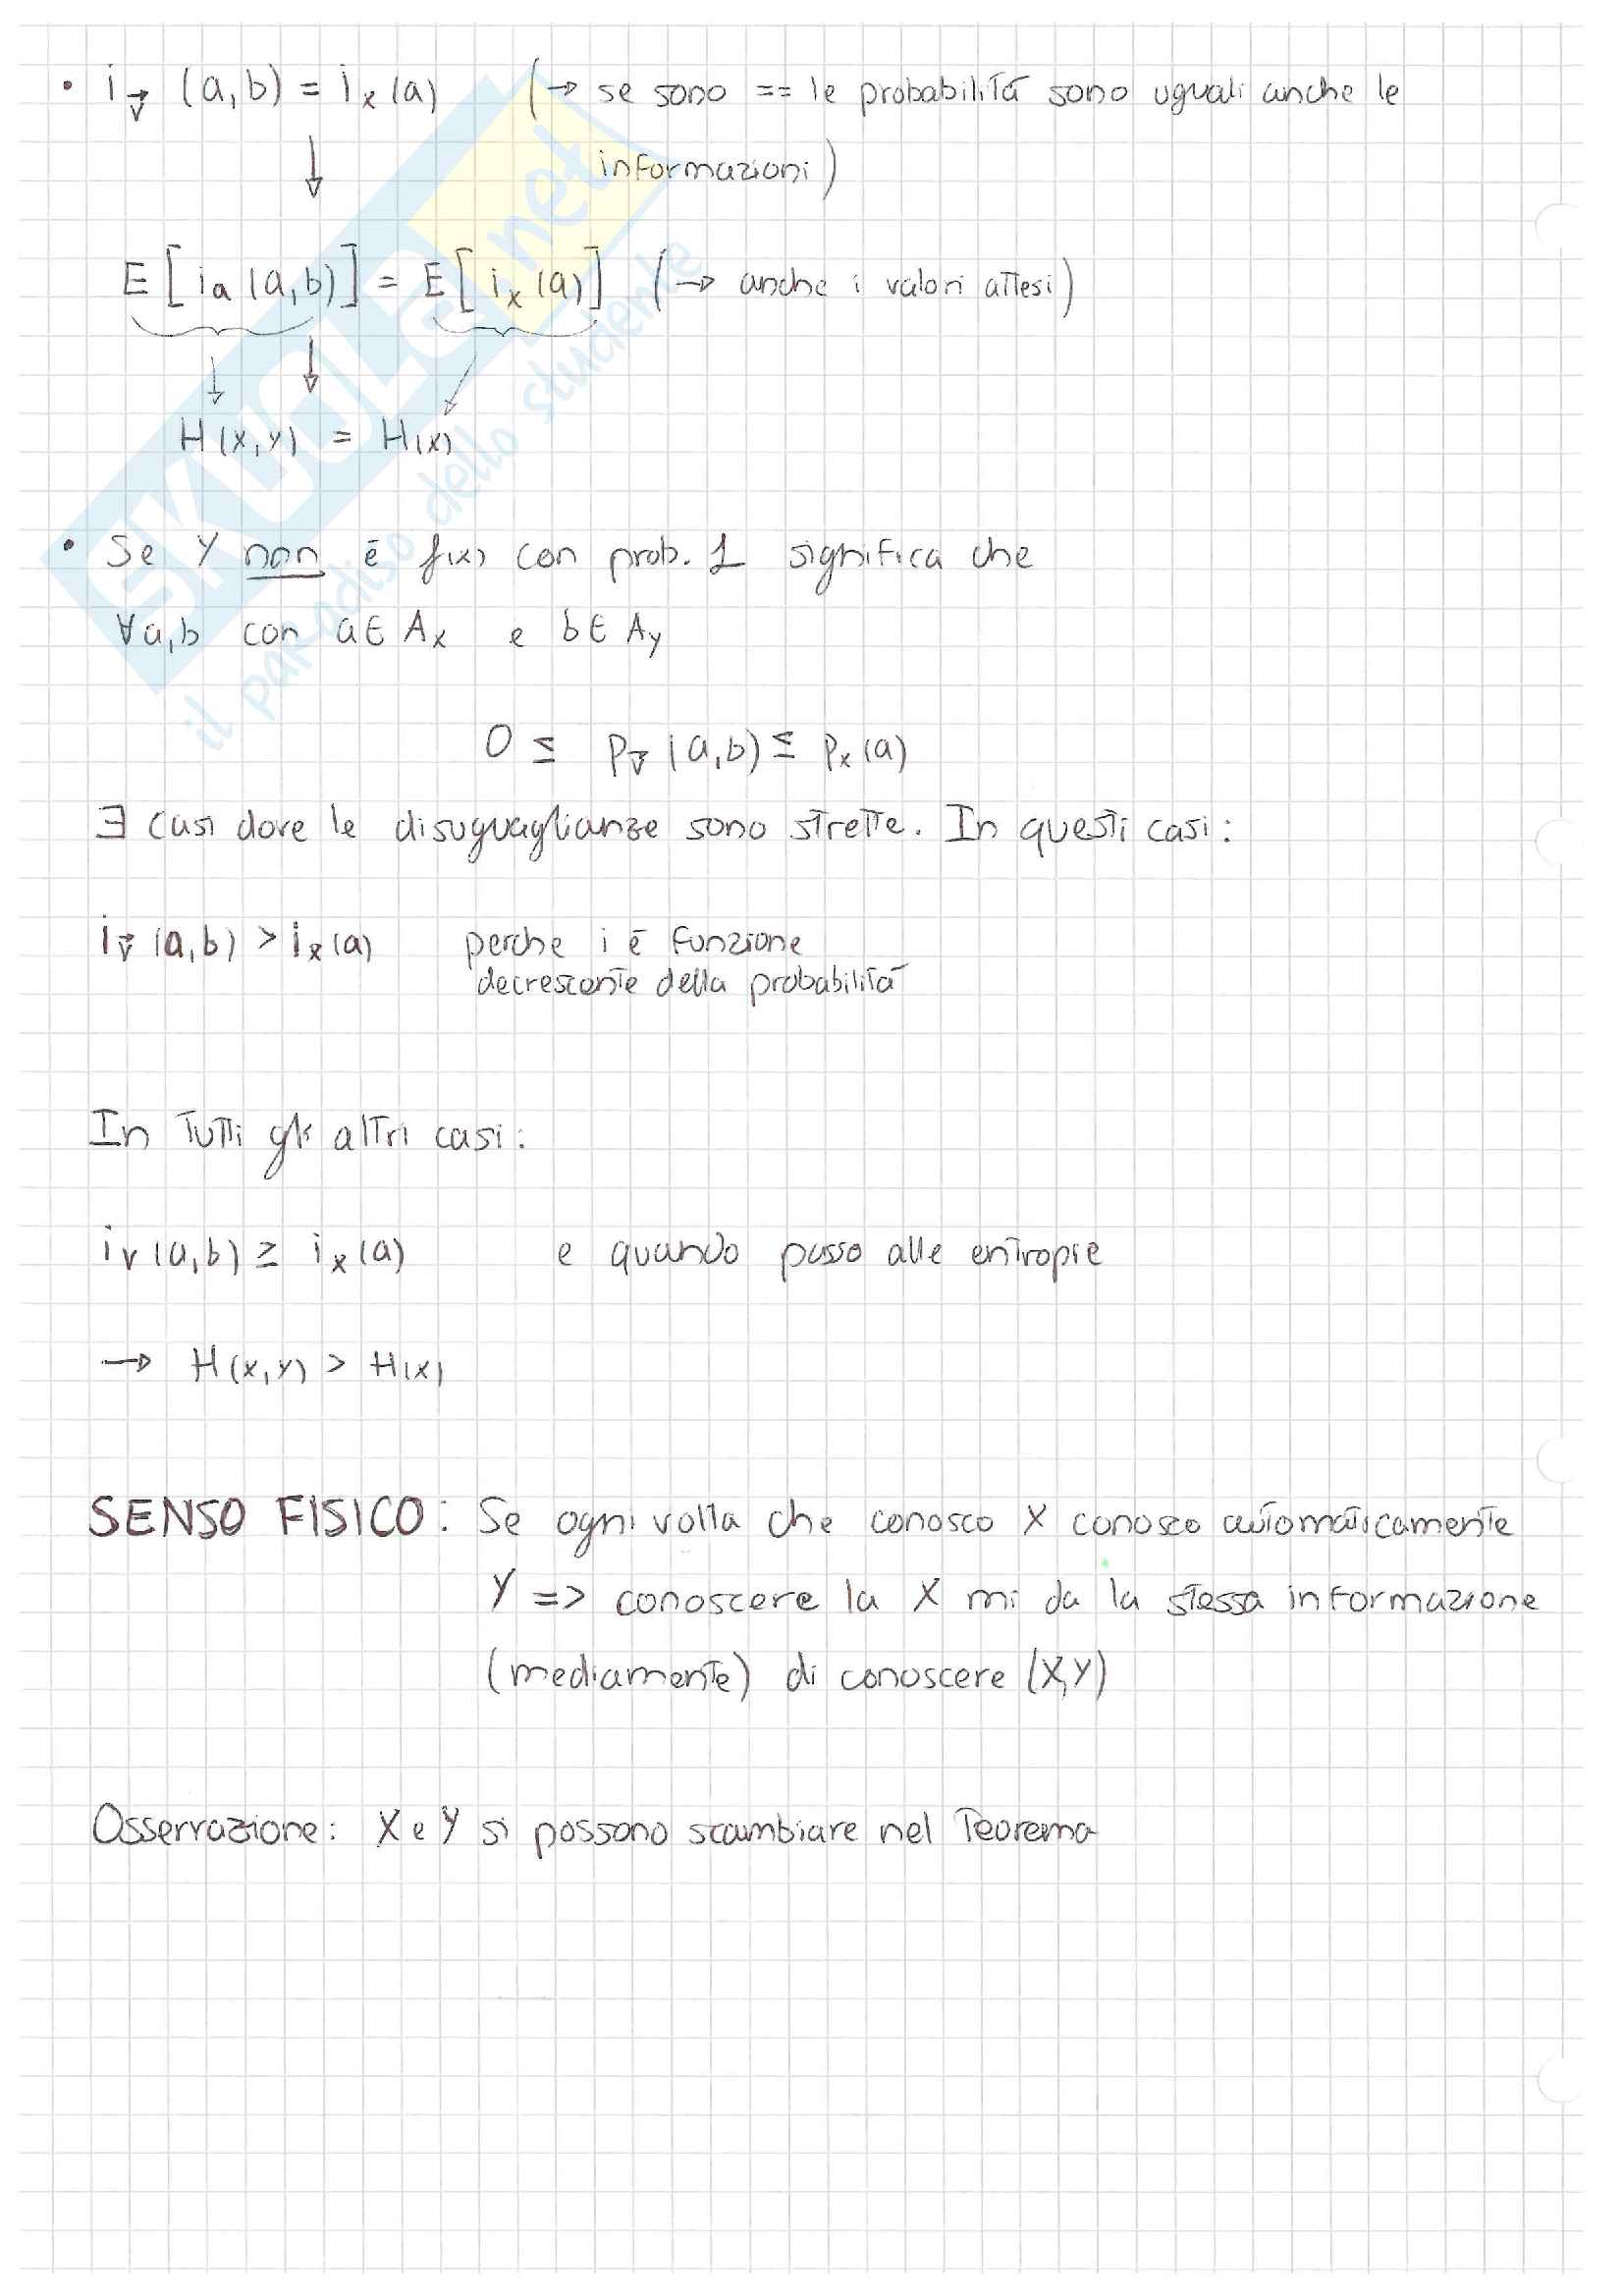 • i_v⃗ (a,b) = i_x (a) (→ se sono == le probabilità sono uguali anche le
informazioni)
↓
E [i_a (a,b)] = E [i_x (a)] (→ anche i valori attesi)
↓ ↓ ↙
H(x,y) = H(x)
• Se Y non è f(x) con prob. 1 significa che
∀a,b con a∈ A_x e b∈ A_y
0 ≤ p_v⃗ (a,b) ≤ p_x (a)
∃ casi dove le disuguaglianze sono strette. In questi casi:
i_v⃗ (a,b) > i_x (a) perche i è funzione
decrescente della probabilità
In tutti gli altri casi:
i_v (a,b) ≥ i_x (a) e quando passo alle entropie
→ H(x,y) > H(x)
SENSO FISICO: Se ogni volta che conosco X conosco automaticamente
Y => conoscere la X mi da la stessa informazione
(mediamente) di conoscere (X,Y)
Osservazione: X e Y si possono scambiare nel Teorema
SKUOLA.net
il paradiso dello studente